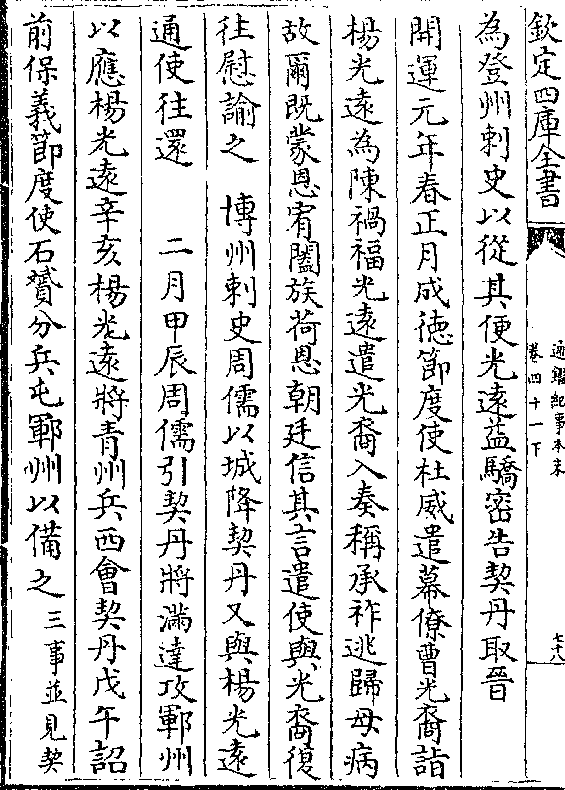 欽定四庫全書
通鑑紀事本末
卷四十一下
七十八
為登州刺史以從其便光逺益驕密告契丹取晉
開運元年春正月成徳節度使杜威遣幕僚曹光裔詣
楊光逺為陳禍福光逺遣光裔入奏稱承祚逃歸母病
故爾既蒙恩宥闔族荷恩朝廷信其言遣使與光裔復
往慰諭之　博州刺史周儒以城降契丹又與楊光逺
通使往還　二月甲辰周儒引契丹將滿達攻鄆州
以應楊光逺辛亥楊光逺將青州兵西會契丹戊午詔
前保義節度使石贇分兵屯鄆州以備之三事並見契